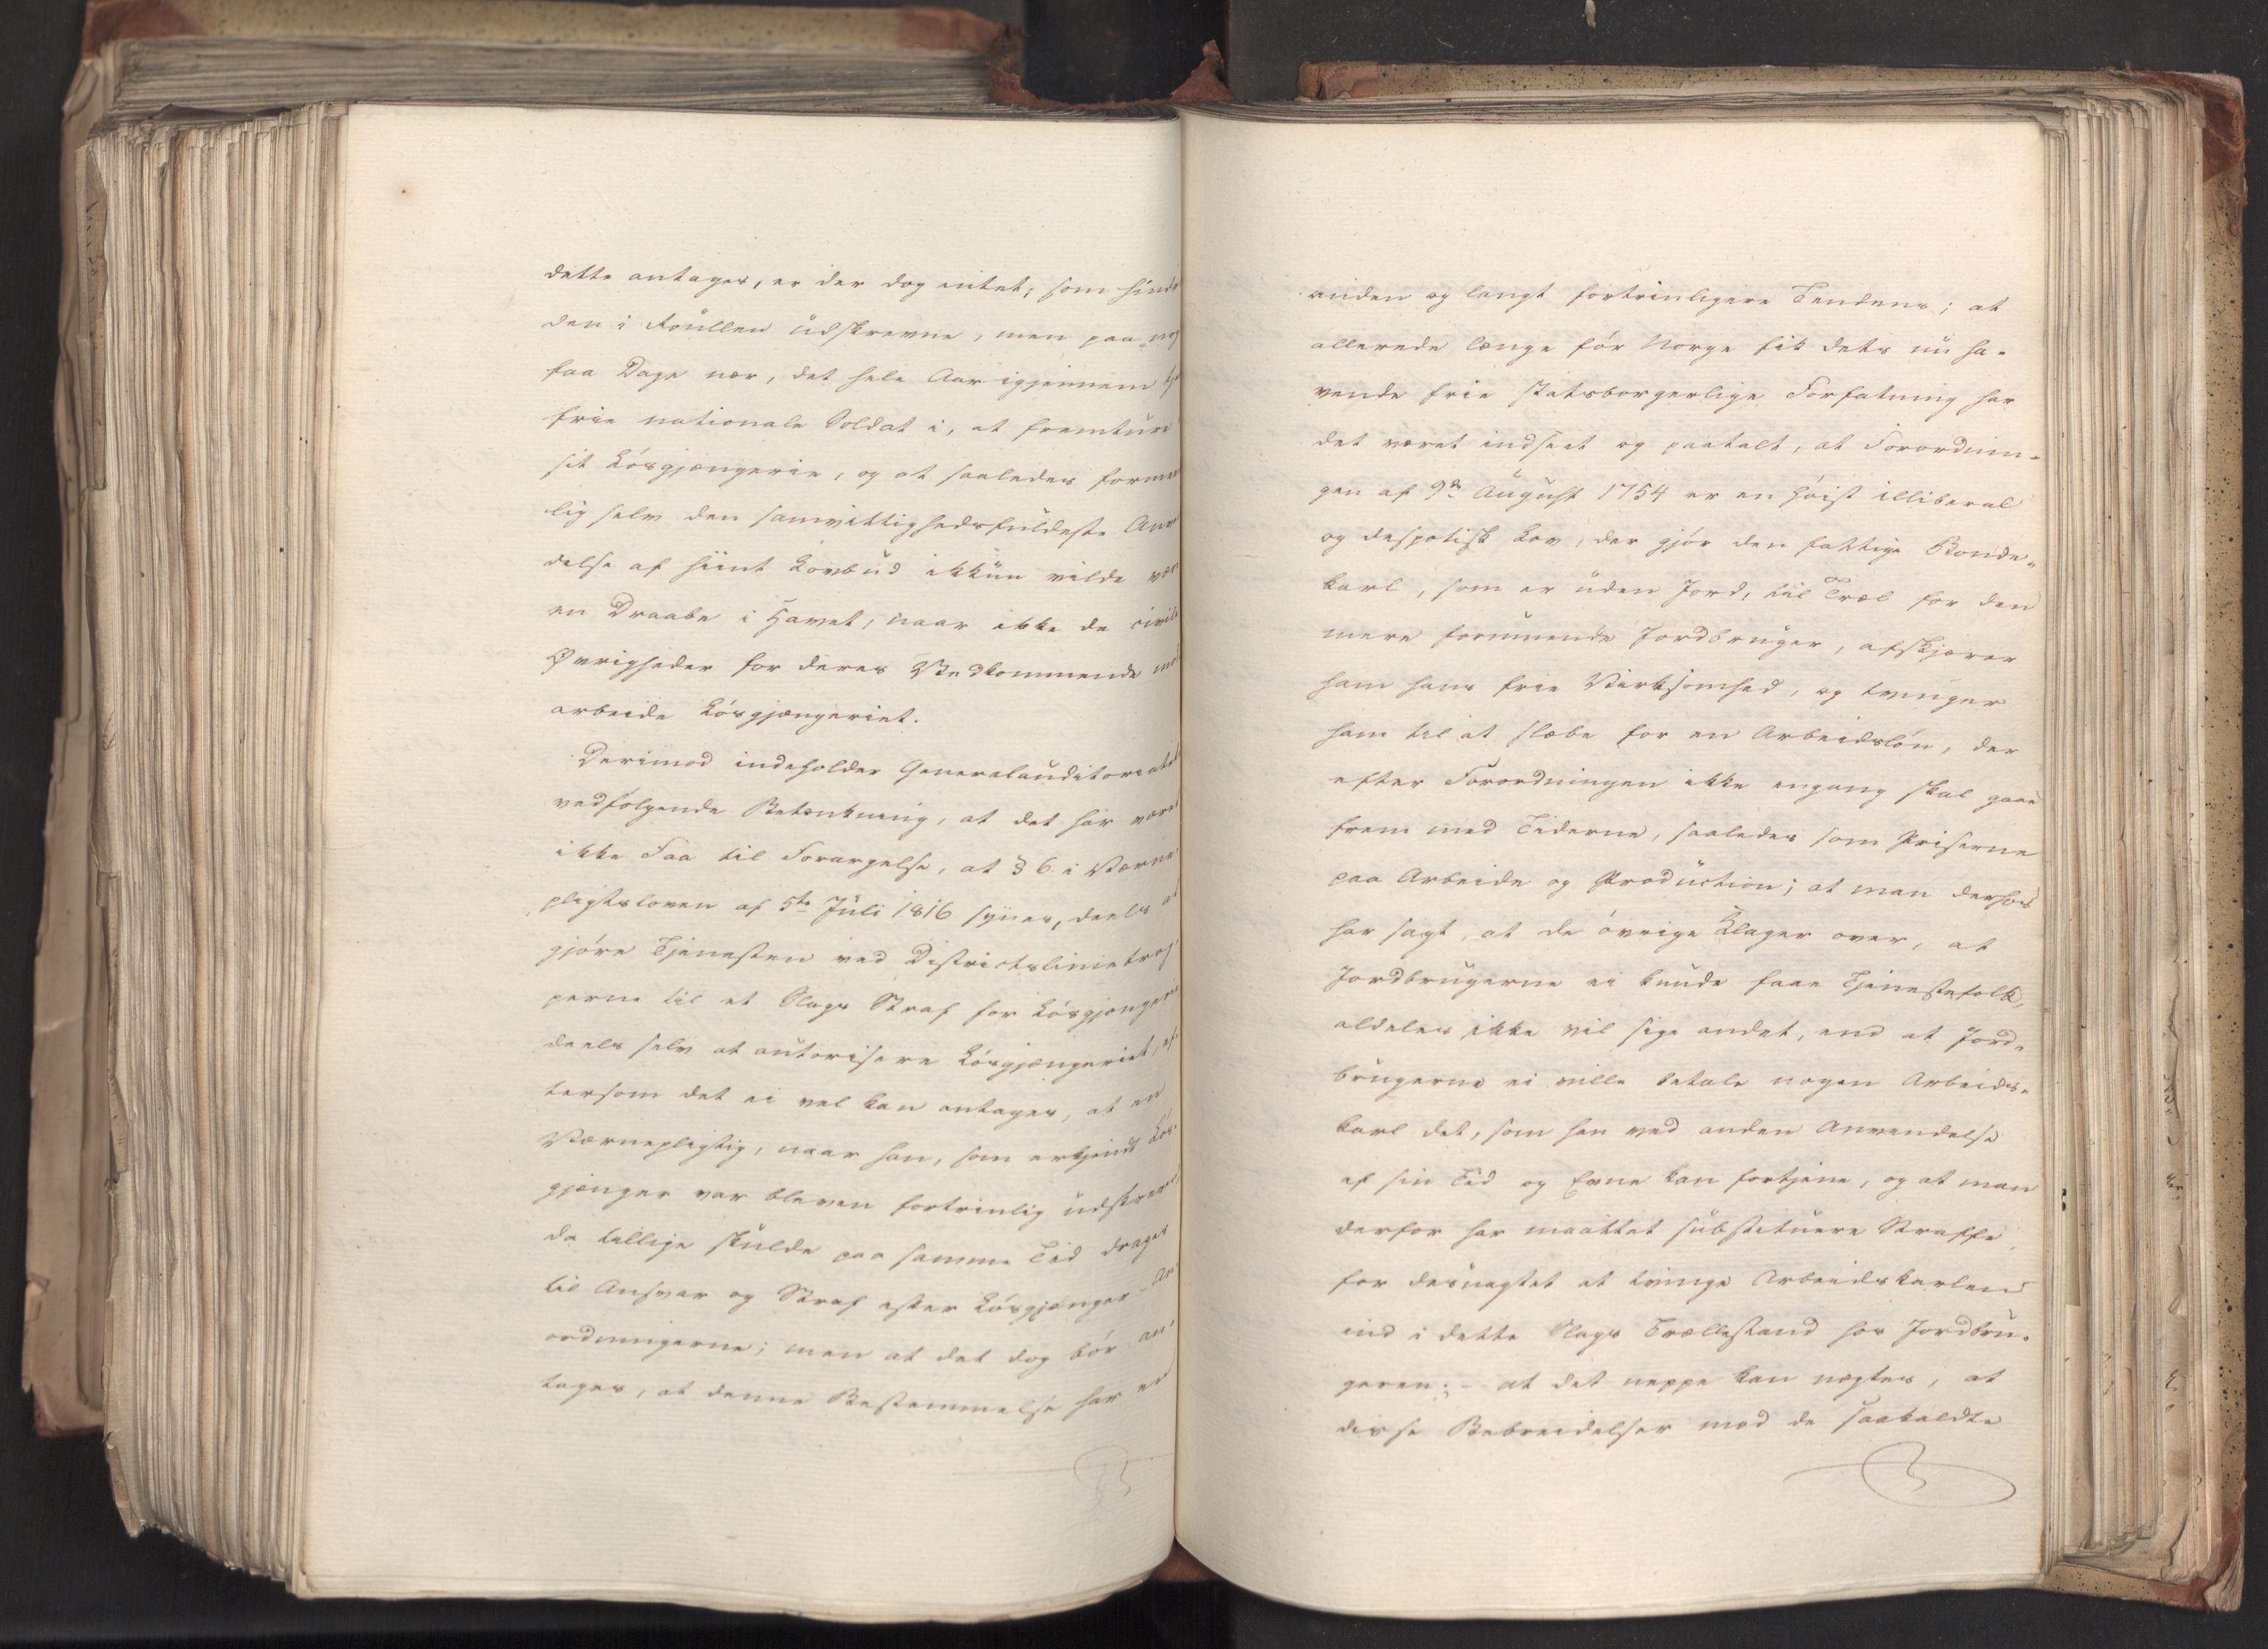 dette antages, er der dog intet, som hindr
den i Roullen udskrevne, men paa nog
faa Dage nær, det hele Aar igjennem tje
frie nationale Soldat i, at fremture
sit Løsgjængerie, og at saaledes formee
lig selv den samvittighedsfuldeste Anve
delse af hiint Lovbud ikkun vilde vær
en Draabe i Havet, naar ikke de civile
Øvrigheder for deres Vedkommende mod
arbeide Løsgjængeriet.
Derimod indeholder Generalauditoriatets
vedfølgende Betænkning, at det har været
ikke Faa til Forargelse, at § 6 i Værne
pligtsloven af 5te Juli 1816 synes, deels at
gjøre Tjenesten ved Districtslinietrop
perne til et Slags Straf for Løsgjængere
deels selv at autorisere Løsgjængeriet, ef-
tersom det ei vel kan antages, at en
Værnepligtig, naar han, som erkjendt Løs-
gjænger var bleven fortrinlig udskreven,
da tillige skulde paa samme Tid drages
til Ansvar og Straf efter Løsgjænger-An-
ordningerne; men at det dog bør an-
tages, at denne Bestemmelse har en
anden og langt fortrinligere Tendens; at
allerede længe før Norge fik dets nu ha-
vende frie statsborgerlige Forfatning har
det været indseet og paatalt, at Forordnin-
gen af 9de August 1754 er en høist illiberal
og despotisk Lov, der gjør den fattige Bonde-
karl, som er uden Jord, til Træl for den
mere formuende Jordbruger, afskjærer
ham hans frie Virksomhed, og tvinger
ham til at slæbe for en Arbeidsløn, der
efter Forordningen ikke engang skal gaae
frem med Tiderne, saaledes som Priserne
paa Arbeide og Production; at man derhos
har sagt, at de øvrige Klager over, at
Jordbrugerne ei kunde faae Tjenestefolk,
aldeles ikke vil sige andet, end at Jord-
brugerne ei ville betale nogen Arbeids-
karl det, som han ved anden Anvendelse
af sin Tid og Evne kan fortjene, og at man
derfor har maattet substituere Straffe
for desuagtet at tvinge Arbeidskarlen
ind i dette Slags Trællestand hos Jordbru-
geren; - at det neppe kan nægtes, at
disse Bebreidelser mod de saakaldte